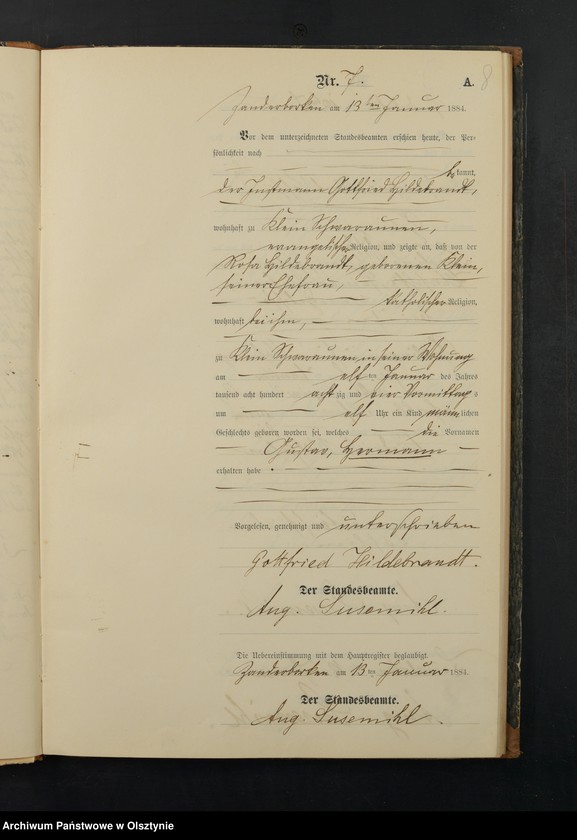 Nr. 7.
A.
8
Zanderborken am 13ten Januar 1884.
Vor dem unterzeichneten Standesbeamten erschien heute, der Per-
sönlichkeit nach
bekannt,
der Instmann Gottfried Hildebrandt,
wohnhaft zu Klein Schwaraunen,
evangelischer Religion, und zeigte an, daß von der
Rosa Hildebrandt, geborenen Klein,
seiner Ehefrau,
katholischer Religion,
wohnhaft bei ihm,
zu Klein Schwaraunen in seiner Wohnung
am elften Januar des Jahres
tausend acht hundert achtzig und vier Vormittags
um elf Uhr ein Kind männlichen
Geschlechts geboren worden sei, welches die Vornamen
Gustav, Hermann
erhalten habe.
Vorgelesen, genehmigt und unterschrieben
Gottfried Hildebrandt.
Der Standesbeamte.
Aug. Susemihl.
Die Uebereinstimmung mit dem Hauptregister beglaubigt.
Zanderborken am 13ten Januar 1884.
Der Standesbeamte.
Aug. Susemihl.
Archiwum Państwowe w Olsztynie